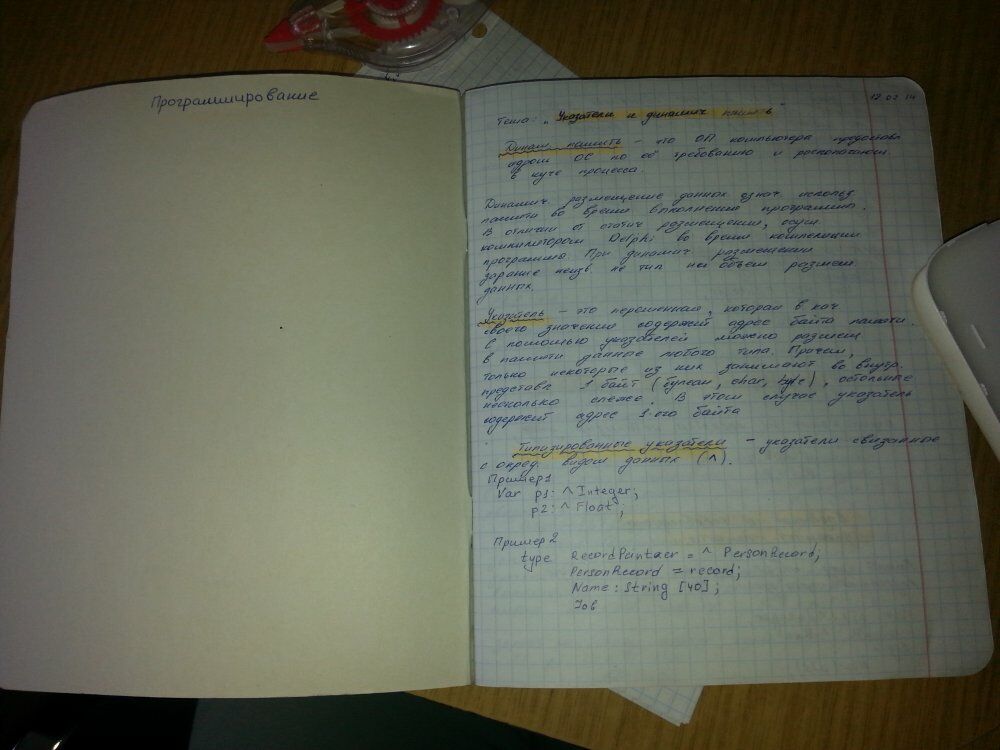 Программирование
12 02 14
Тема: „Указатели и динамич память"
Динам. память – это ОП компьютера предоставл
ядром ОС по её требованию и располагающ.
в куче процесса.
Динамич. размещение данных означ. использ
памяти во время выполнения программы.
В отличии от статич размещения, осущ.
компилятором Delphi во время компиляции
программы. При динамич размещении
заранее неизв. не тип не объем размещ.
данных.
Указатель – это переменная, которая в кач
своего значения содержит адрес байта памяти.
С помощью указателей можно размещ
в памяти данные любого типа. Причём,
только некоторые из них занимают во внутр.
представл 1 байт (булеан, char, byte), остальные
несколько
В этом случае указатель
содержит адрес 1-ого байта
Типизированные указатели – указатели связанные
с опред. видом данных (^).
Пример1
Var p1: ^ Integer;
p2: ^ Float;
Пример2
type RecordPointaer = ^ PersonRecord;
PersonRecord = record;
Name: String [40];
Job